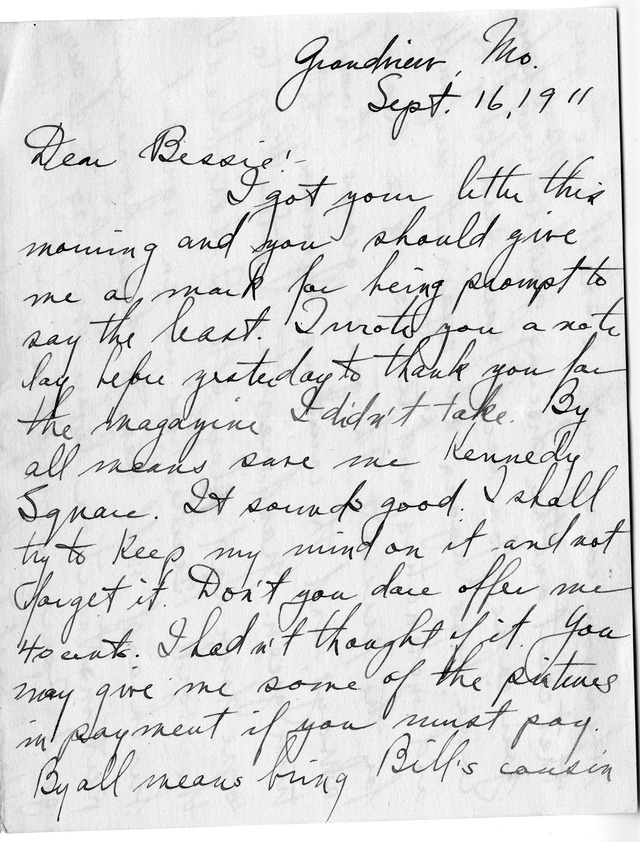 Grandview, Mo.
Sept. 16, 1911
Dear Bessie:-
I got your letter this
morning and you should give
me a mark for being prompt to
say the least. I wrote you a note
day before yesterday to thank you for
the magazine I didn't take. By
all means save me Kennedy
Square. It sounds good. I shall
try to keep my mind on it and not
forget it. Don't you dare offer me
40 cents. I hadn't thought of it. You
may give me some of the pictures
in payment if you must pay.
By all means bring Bill's cousin